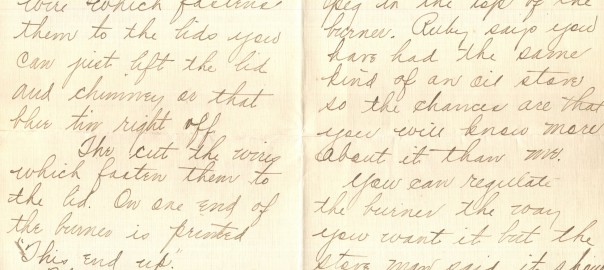 wire which fastens
them to the lids you
can just lift the lid
and chimney or that
blue tin right off
The cut the wires
which fasten them to
the lid. On one end of
the burner is printed
"This end up".
peg in the top of the
burner. Ruby says you
have had the same
kind of an oil stove
so the chances are that
you will know more
about it than me.
You can regulate
the burner the way
you want it but the
stove man said it